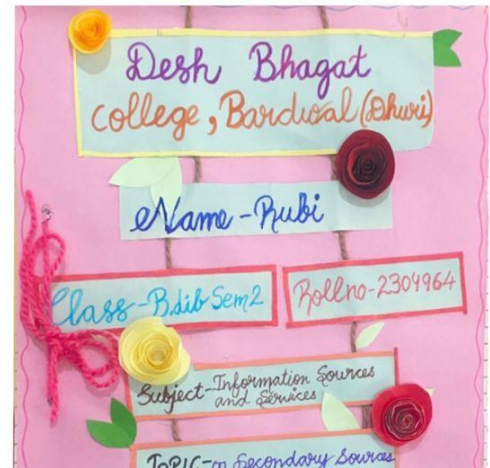 Desh Bhagat
College, Bardwal (Dhuri)
Name - Rubi
Class - B.lib Sem 2
Roll no - 2304964
Subject - Information Sources
and Services
TOPIC - on Secondary Sources